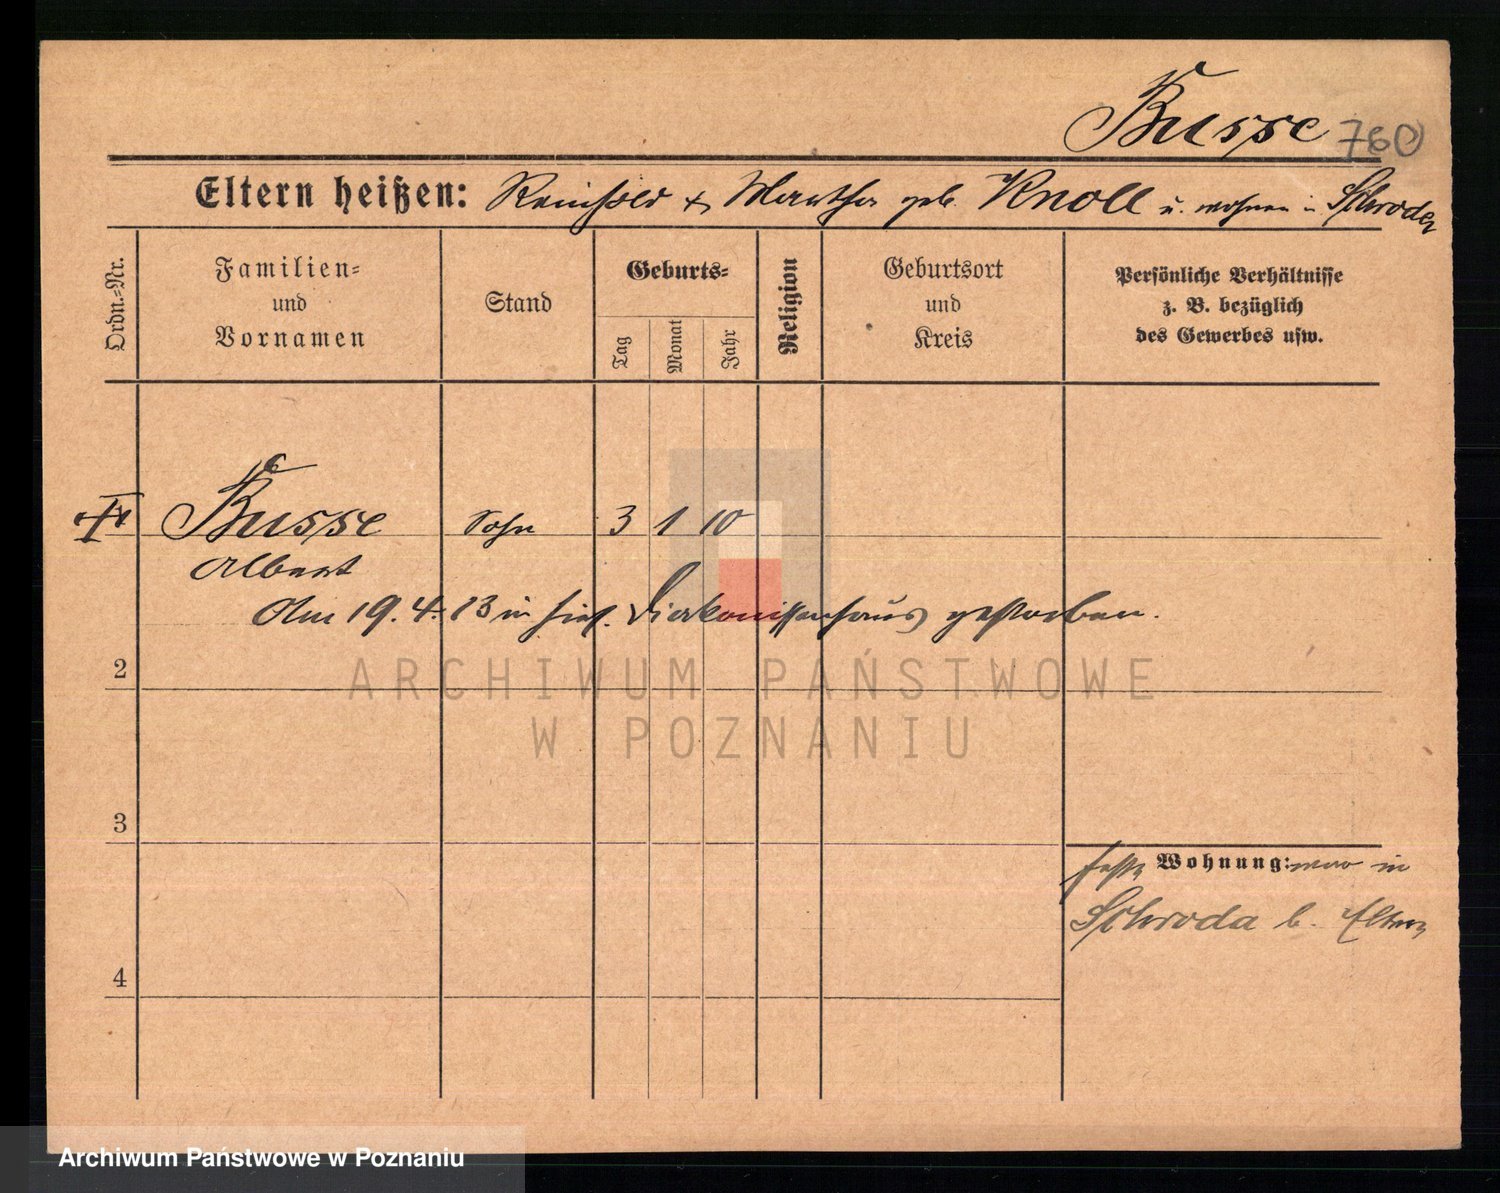 Busse 760
Eltern heißen: Reinhold & Martha geb. Knoll u. wohnen in Schroda
Ordn.-Nr.
Familien-
und
Vornamen
Stand
Geburts-
Tag
Monat
Jahr
Religion
Geburtsort
und
Kreis
Persönliche Verhältnisse
z. B. bezüglich
des Gewerbes usw.
Busse Sohn 3 1 10
Albert
Am 19. 4. 13 in hies. Diakonissenhaus gestorben.
2
ARCHIWUM PAŃSTWOWE
W POZNANIU
3
feste Wohnung: war in
Schroda b. Eltern
4
Archiwum Państwowe w Poznaniu